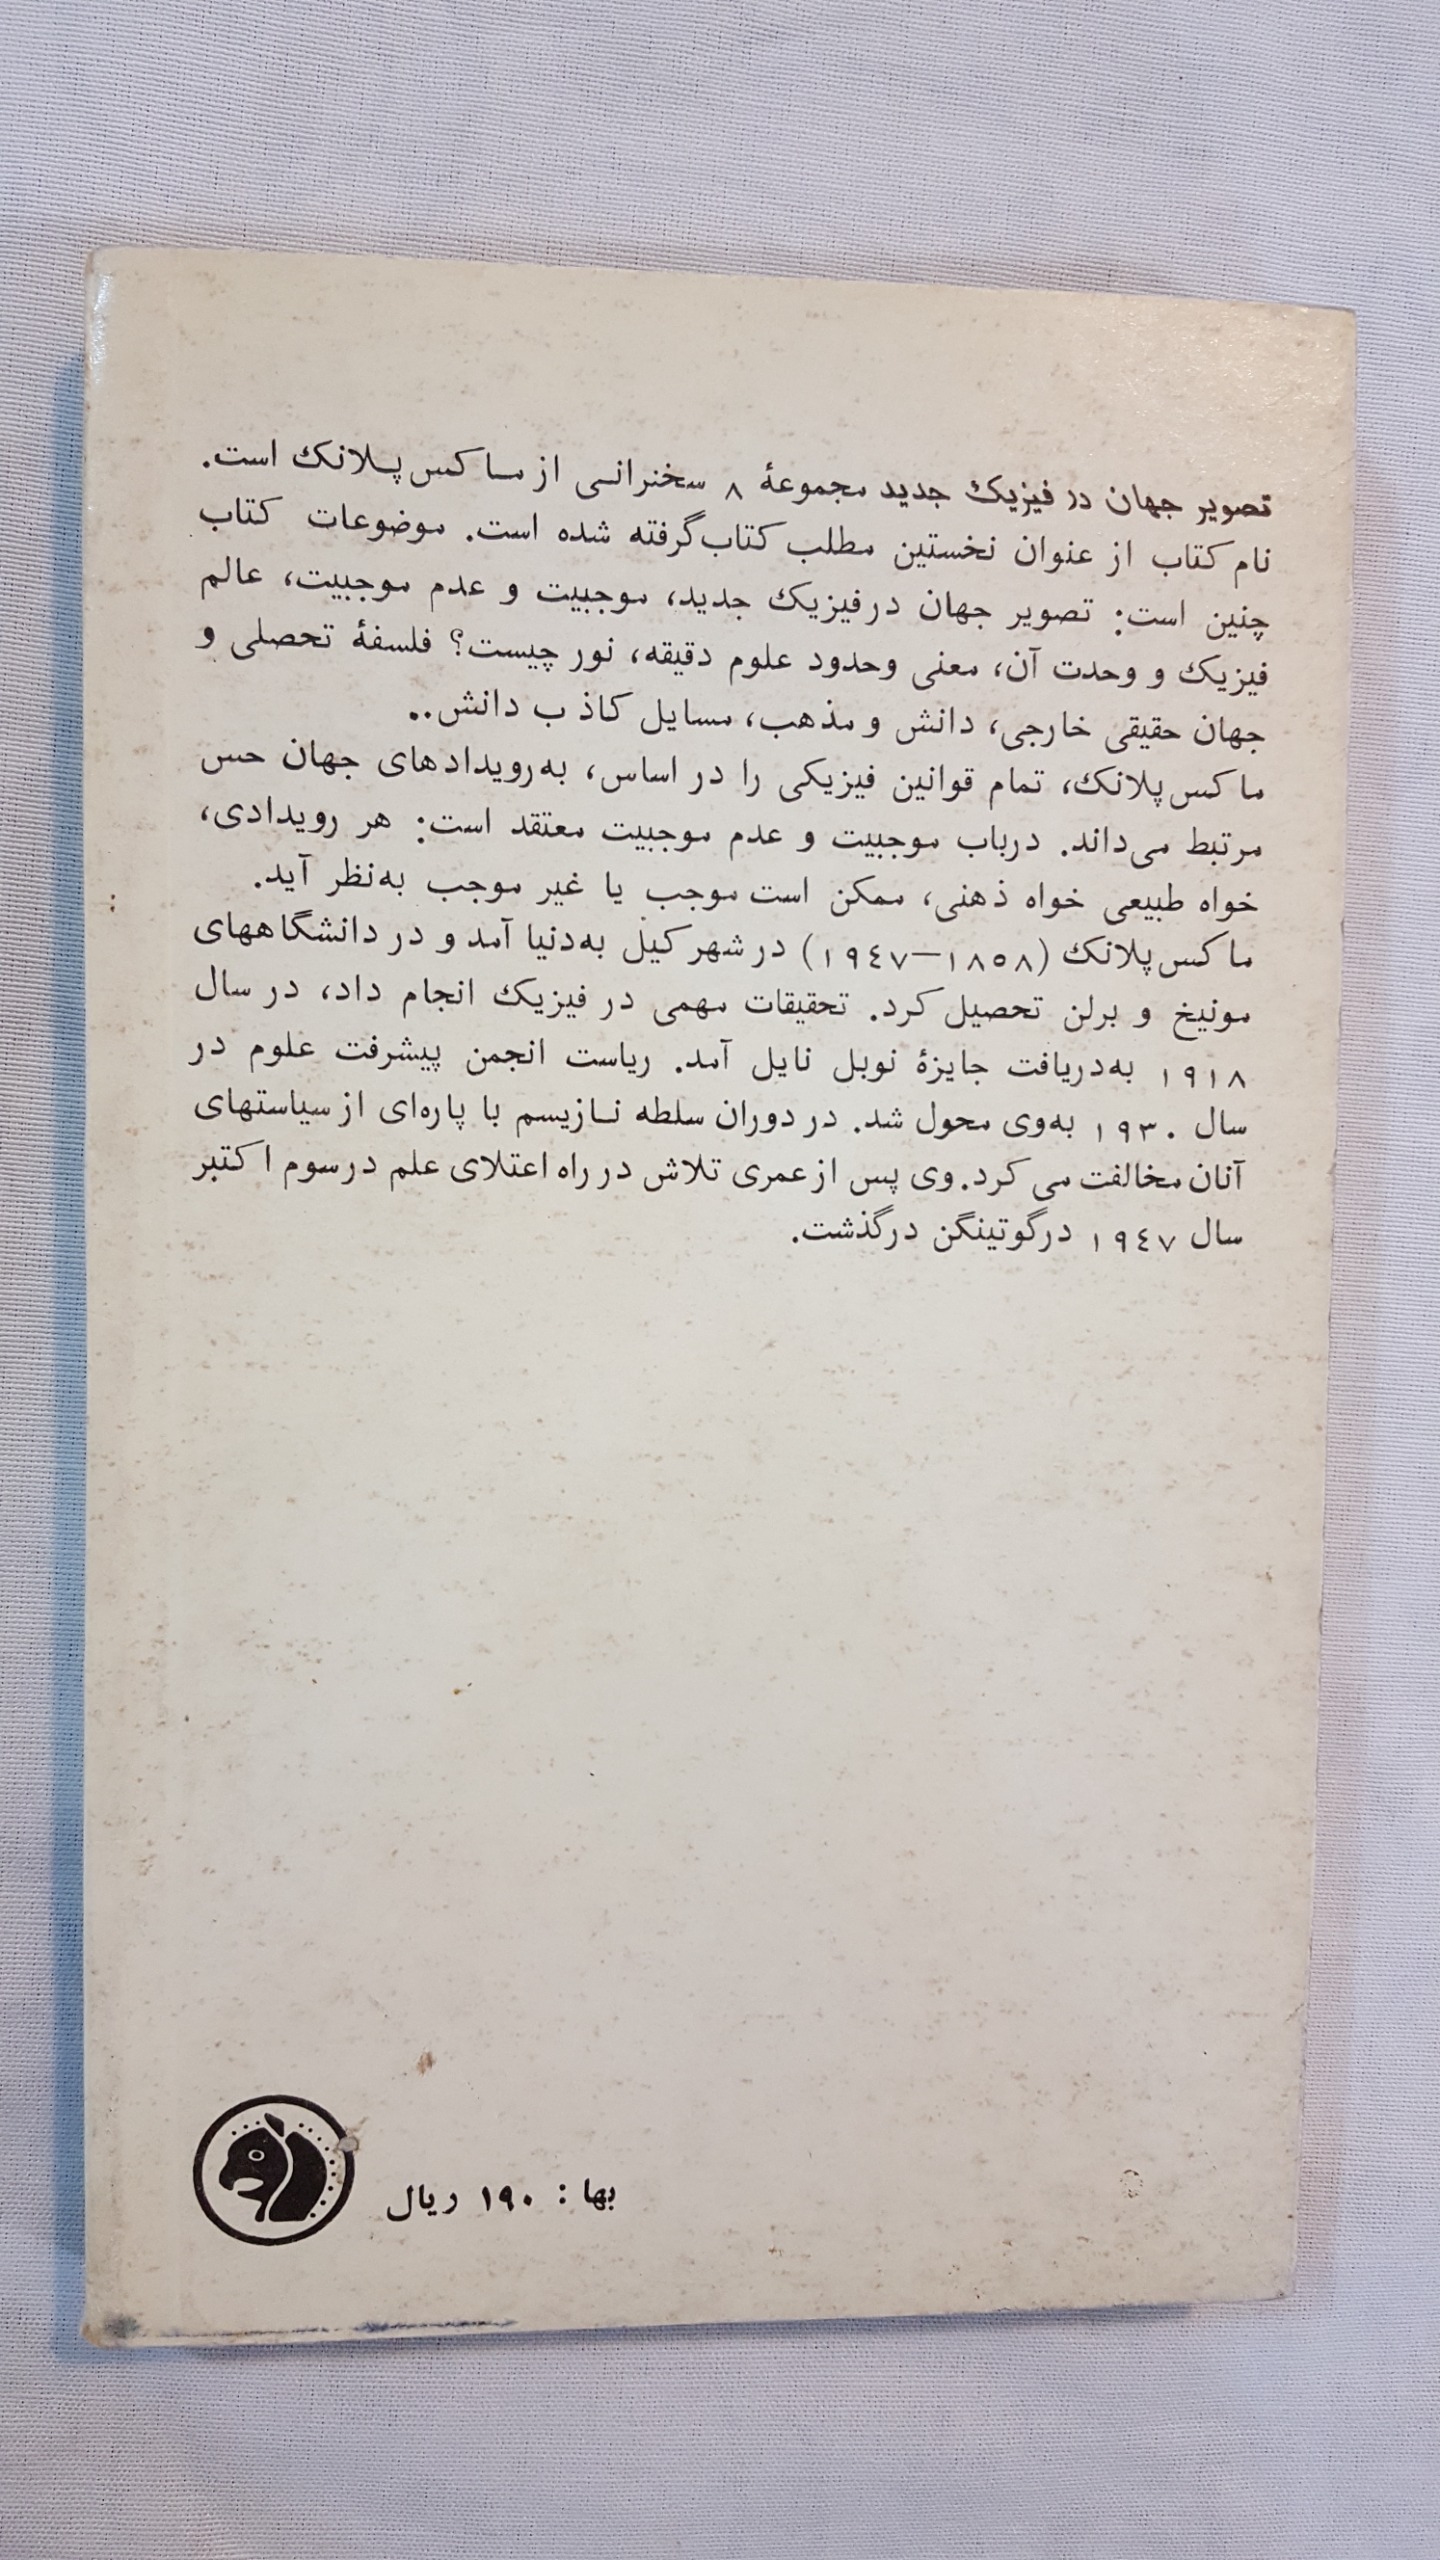 تصویر جهان در فیزیک جدید مجموعهٔ ۸ سخنرانی از ماکس پلانک است.
نام کتاب از عنوان نخستین مطلب کتاب گرفته شده است. موضوعات کتاب
چنین است: تصویر جهان در فیزیک جدید، موجبیت و عدم موجبیت، عالم
فیزیک و وحدت آن، معنی وحدود علوم دقیقه، نور چیست؟ فلسفهٔ تحصلی و
جهان حقیقی خارجی، دانش و مذهب، مسایل کاذب دانش..
ماکس پلانک، تمام قوانین فیزیکی را در اساس، به رویدادهای جهان حس
مرتبط می‌داند. درباب موجبیت و عدم موجبیت معتقد است: هر رویدادی،
خواه طبیعی خواه ذهنی، ممکن است موجب یا غیر موجب به‌نظر آید.
ماکس پلانک (۱۸۵۸—۱۹٤۷) در شهر کیل به‌دنیا آمد و در دانشگاههای
مونیخ و برلن تحصیل کرد. تحقیقات مهمی در فیزیک انجام داد، در سال
۱۹۱۸ به‌دریافت جایزهٔ نوبل نایل آمد. ریاست انجمن پیشرفت علوم در
سال ۱۹۳۰ به‌وی محول شد. در دوران سلطه نازیسم با پاره‌ای از سیاستهای
آنان مخالفت می کرد. وی پس از عمری تلاش در راه اعتلای علم در سوم اکتبر
سال ۱۹٤۷ در گوتینگن درگذشت.
بها : ۱۹۰ ریال